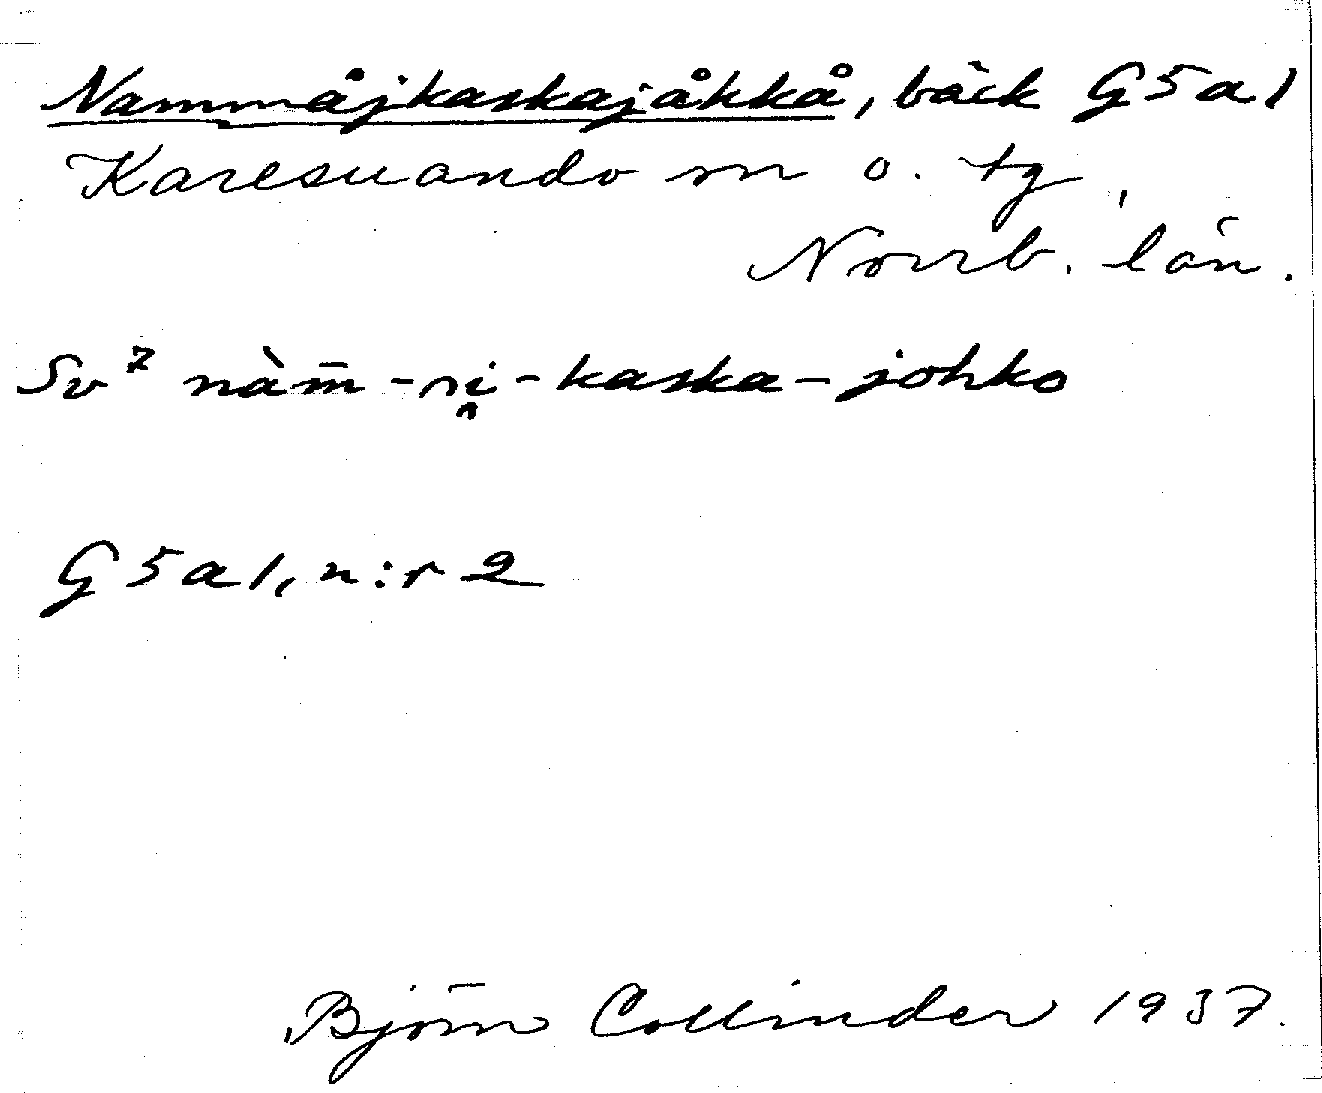 Nammåjkaskajåkkå, bäck G5a1
Karesuando sn o. tg,
Norrb. län.
Sv² nàm̄ - - kaska - johko
G5a1, n:r 2
Björn Collinder 1937.